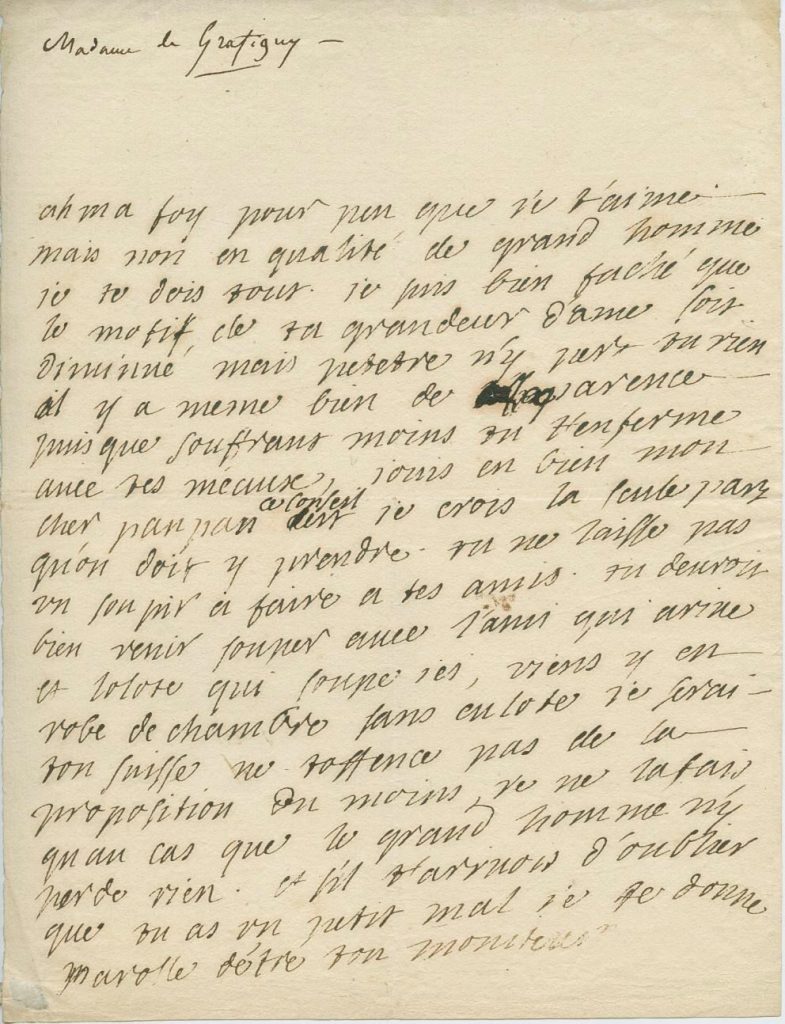 Madame de Grafigny —
ah ma foy pour peu que je t'aime
mais non en qualité de grand homme
je te dois tout. je suis bien faché que
le motif de ta grandeur d'ame soit
diminué, mais petetre n'y pert tu rien
il y a meme bien de parence
puisque souffrant moins tu t'enferme
avec tes méaux, jouis en bien mon
cher panpan ce conseil est je crois la seule part
qu'on doit y prendre. tu ne laisse pas
un soupir a faire a tes amis. tu devrois
bien venir souper avec l'ami qui arive
et lolote qui soupe ici, viens y en
robe de chambre sans culote je serai
ton suisse ne t'offence pas de la
proposition du moins, je ne la fais
qu'au cas que le grand homme n'y
perde rien. et s'il t'arrivois d'oublier
que tu as un petit mal je te donne
parolle d'être ton moniteur